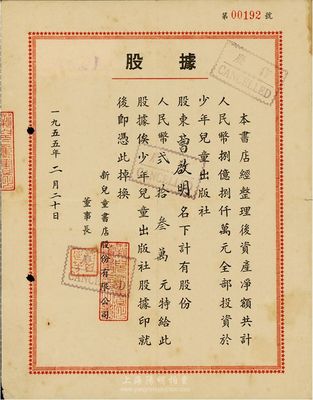 第 00192 號
股據
本書店經整理後資產淨額共計
人民幣捌億捌仟萬元全部投資於
少年兒童出版社
股東曹啟明名下計有股份
人民幣弍拾叁萬元特給此
股據俟少年兒童出版社股據印就
後即憑此掉換
新兒童書店股份有限公司
董事長
一九五五年二月二十日
CANCELLED
CANCELLED
上海陽明拍賣